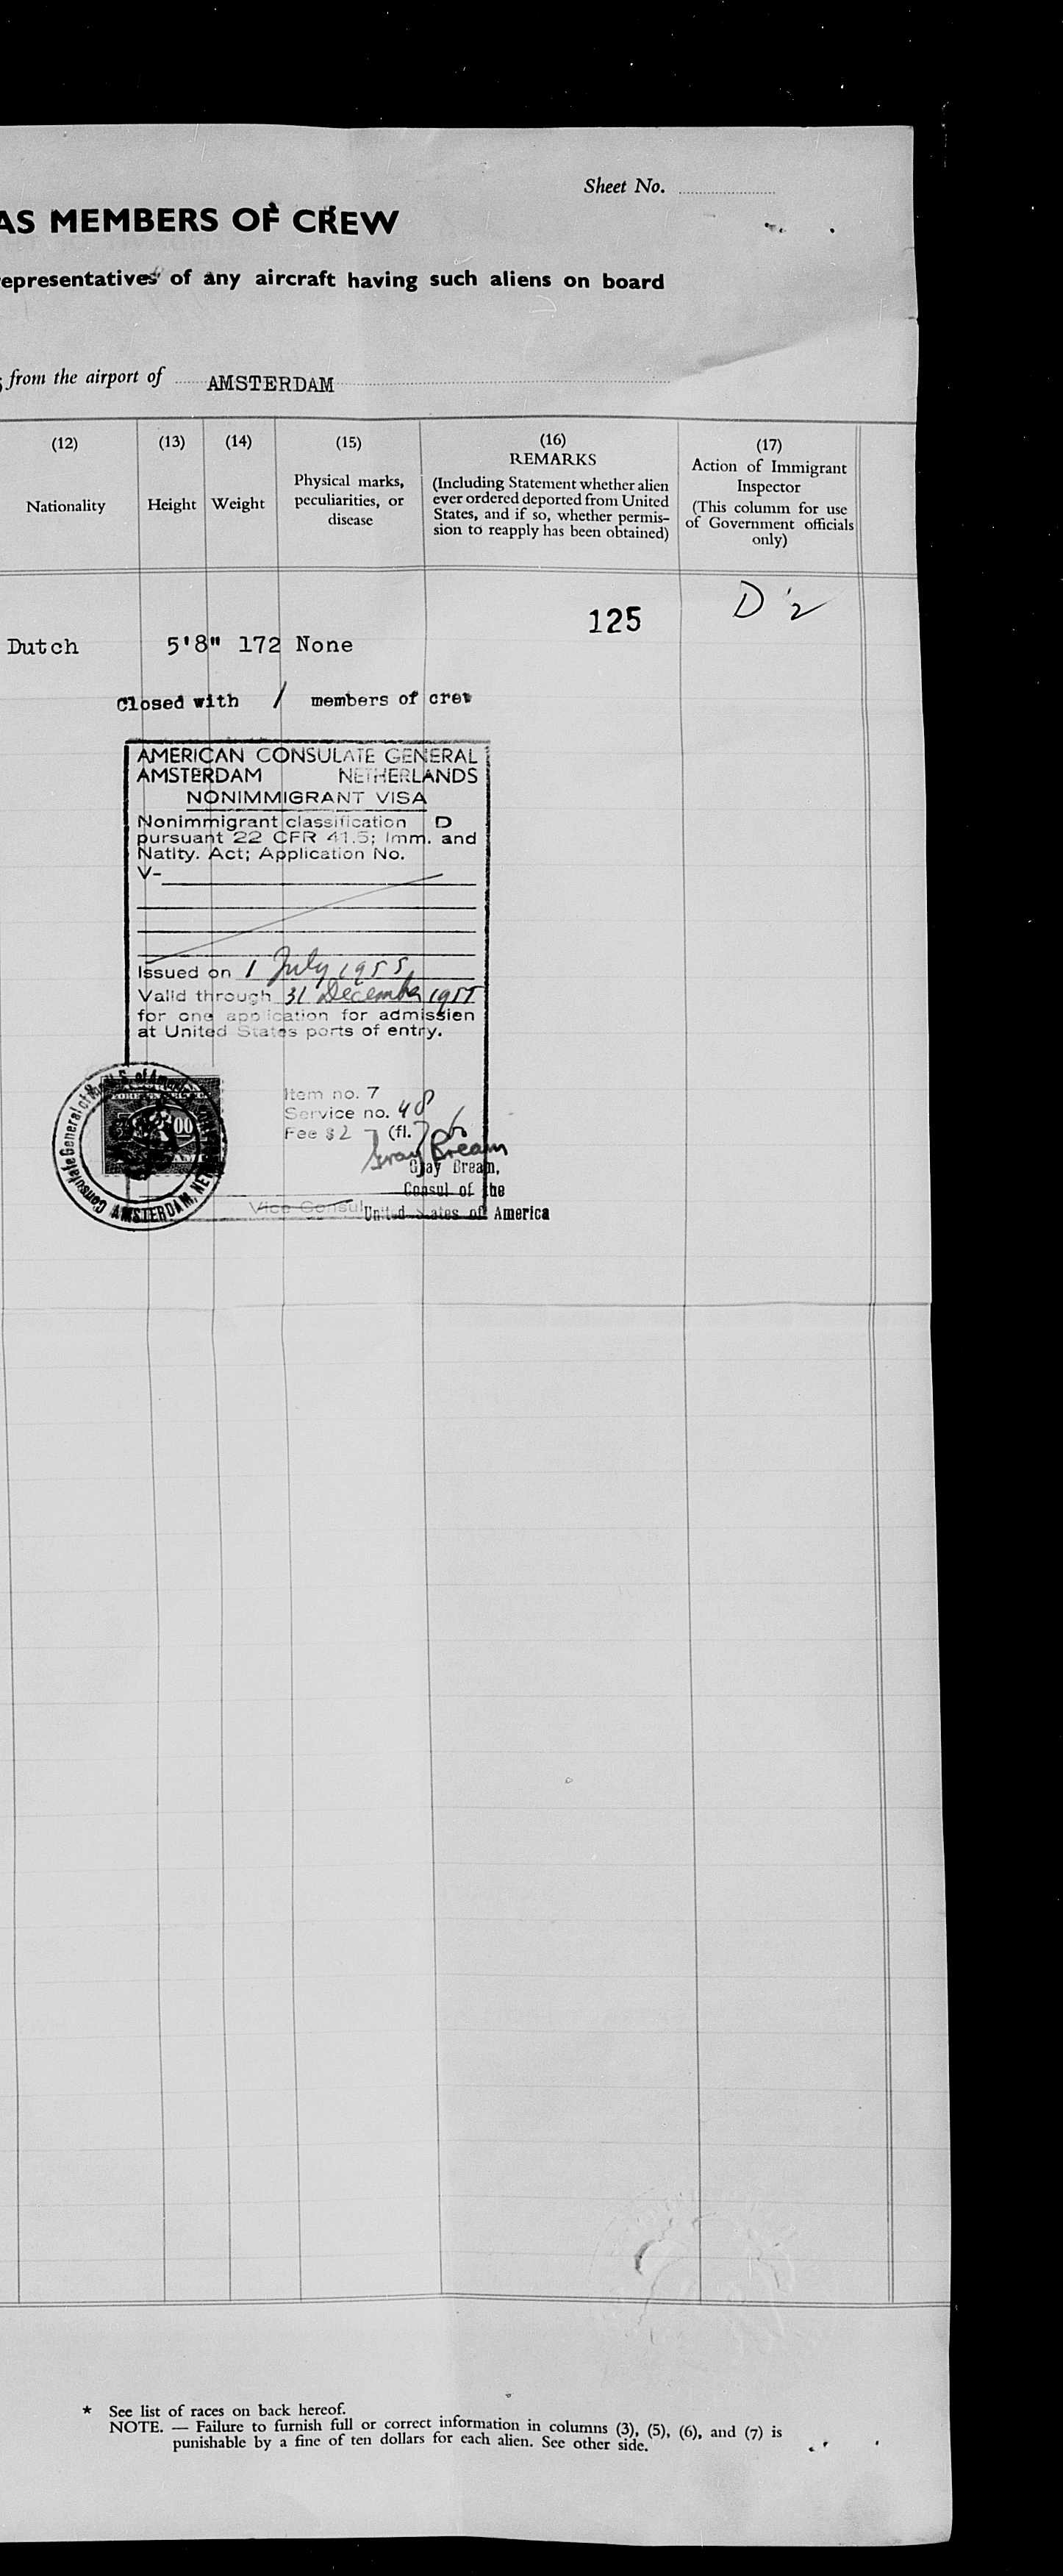 Sheet No.
AS MEMBERS OF CREW
epresentatives of any aircraft having such aliens on board
from the airport of AMSTERDAM
(12)
Nationality
(13)
Height
(14)
Weight
(15)
Physical marks,
peculiarities, or
disease
(16)
REMARKS
(Including Statement whether alien
ever ordered deported from United
States, and if so, whether permis-
sion to reapply has been obtained)
(17)
Action of Immigrant
Inspector
(This column for use
of Government officials
only)
125
D 2
Dutch 5'8" 172 None
Closed with / members of crew
AMERICAN CONSULATE GENERAL
AMSTERDAM NETHERLANDS
NONIMMIGRANT VISA
Nonimmigrant classification D
pursuant 22 CFR 41.5; Imm. and
Natlty. Act; Application No.
V-
Issued on 1 July 1955
Valid through 31 December 1955
for one application for admission
at United States ports of entry.
Item no. 7
Service no. 48
Fee $2 (fl. 7
Gray Bream
Gray Bream,
Consul of the
Vice Consul United States of America
Consulate General of the U.S. of America
AMSTERDAM, NE
00
* See list of races on back hereof.
NOTE. — Failure to furnish full or correct information in columns (3), (5), (6), and (7) is
punishable by a fine of ten dollars for each alien. See other side.